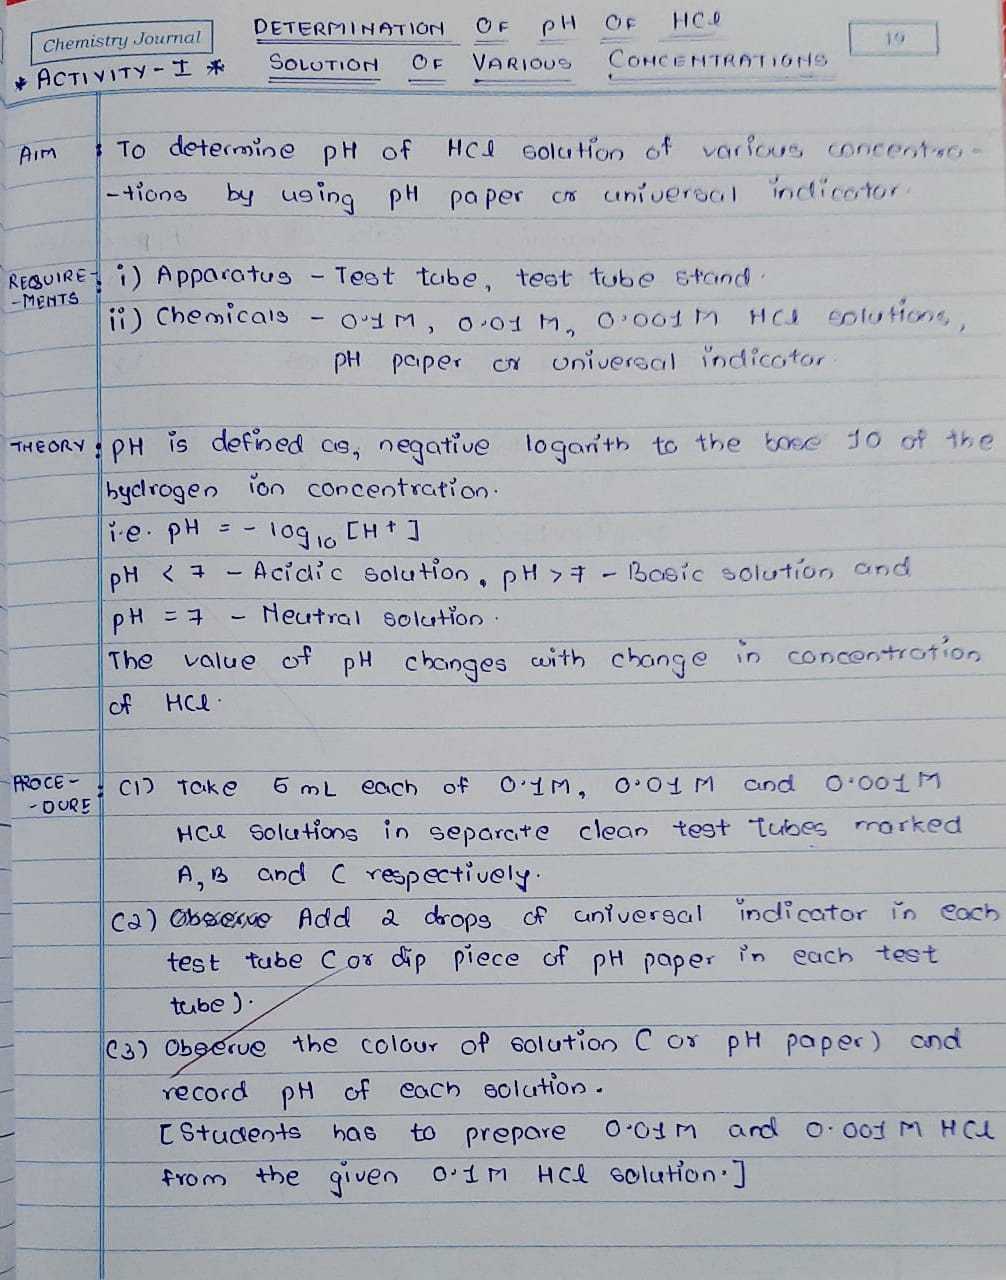 Chemistry Journal
DETERMINATION OF pH OF HCl
19
* ACTIVITY - I *
SOLUTION OF VARIOUS CONCENTRATIONS
AIM : To determine pH of HCl solution of various concentra-
-tions by using pH paper or universal indicator.
REQUIRE- : i) Apparatus - Test tube, test tube stand.
-MENTS
ii) Chemicals - 0.1 M, 0.01 M, 0.001 M HCl solutions,
pH paper or universal indicator.
THEORY : pH is defined as, negative logarith to the base 10 of the
hydrogen ion concentration.
i.e. pH = - log10 [H+]
pH < 7 - Acidic solution, pH > 7 - Basic solution and
pH = 7 - Neutral solution.
The value of pH changes with change in concentration
of HCl.
PROCE- : (1) Take 5 mL each of 0.1M, 0.01 M and 0.001 M
-DURE
HCl solutions in separate clean test tubes marked
A, B and C respectively.
(2) Observe Add 2 drops of universal indicator in each
test tube (or dip piece of pH paper in each test
tube).
(3) Observe the colour of solution (or pH paper) and
record pH of each solution.
[Students has to prepare 0.01 M and 0.001 M HCl
from the given 0.1 M HCl solution.]